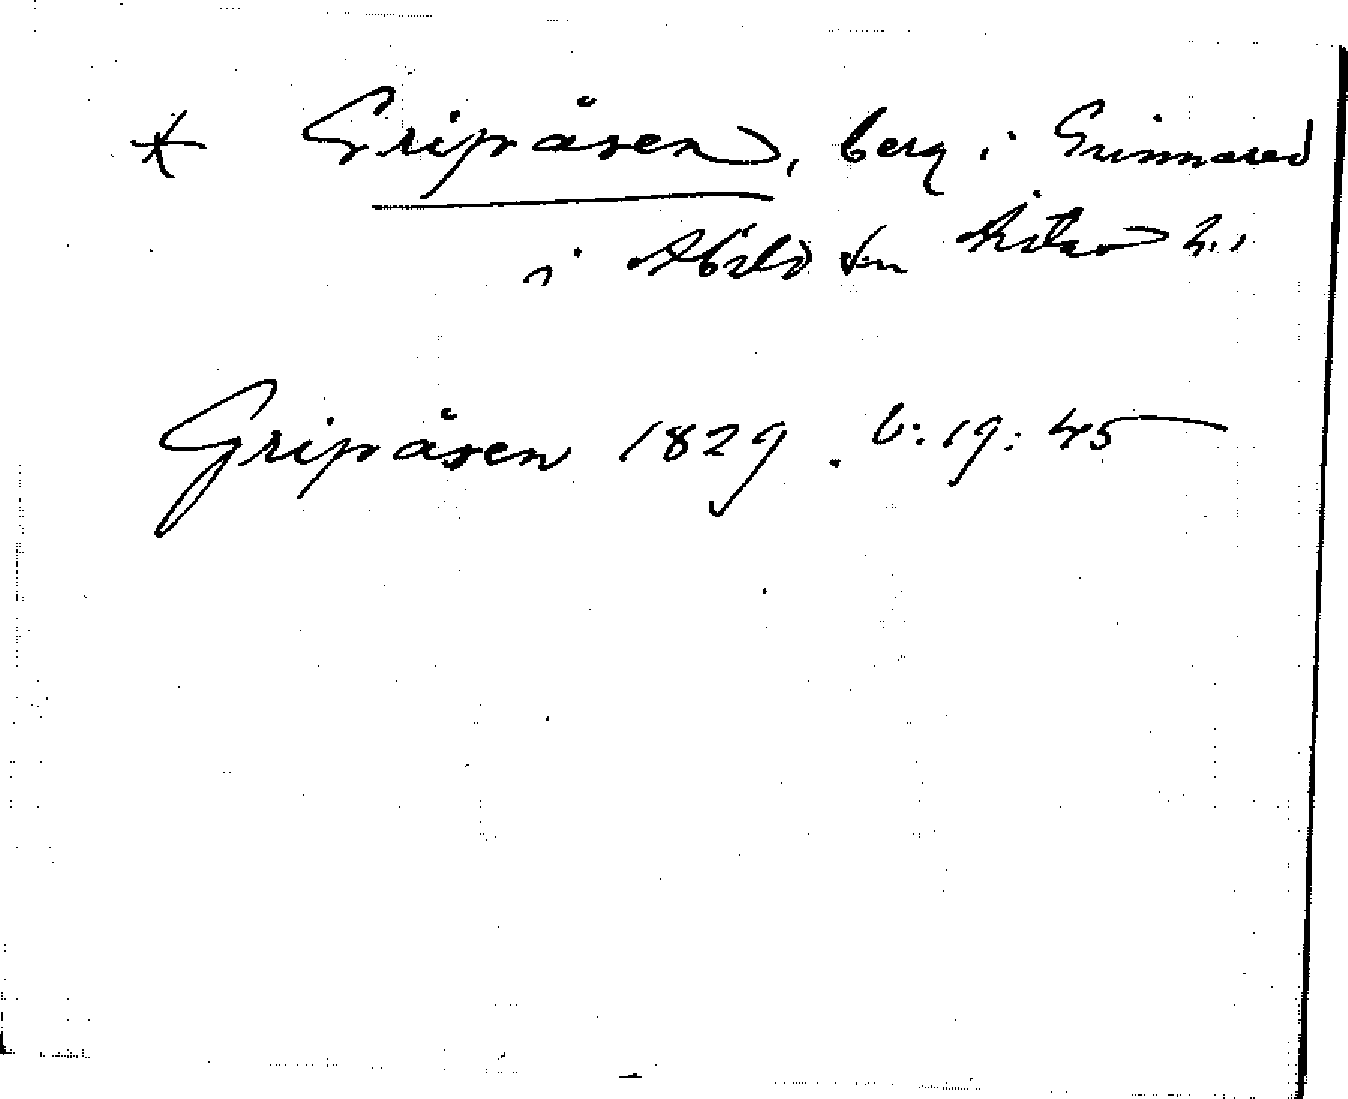 * Gripåsen, berg i Grimmared
i Abild sn Årstad h.,
Gripåsen 1829. b:19:45